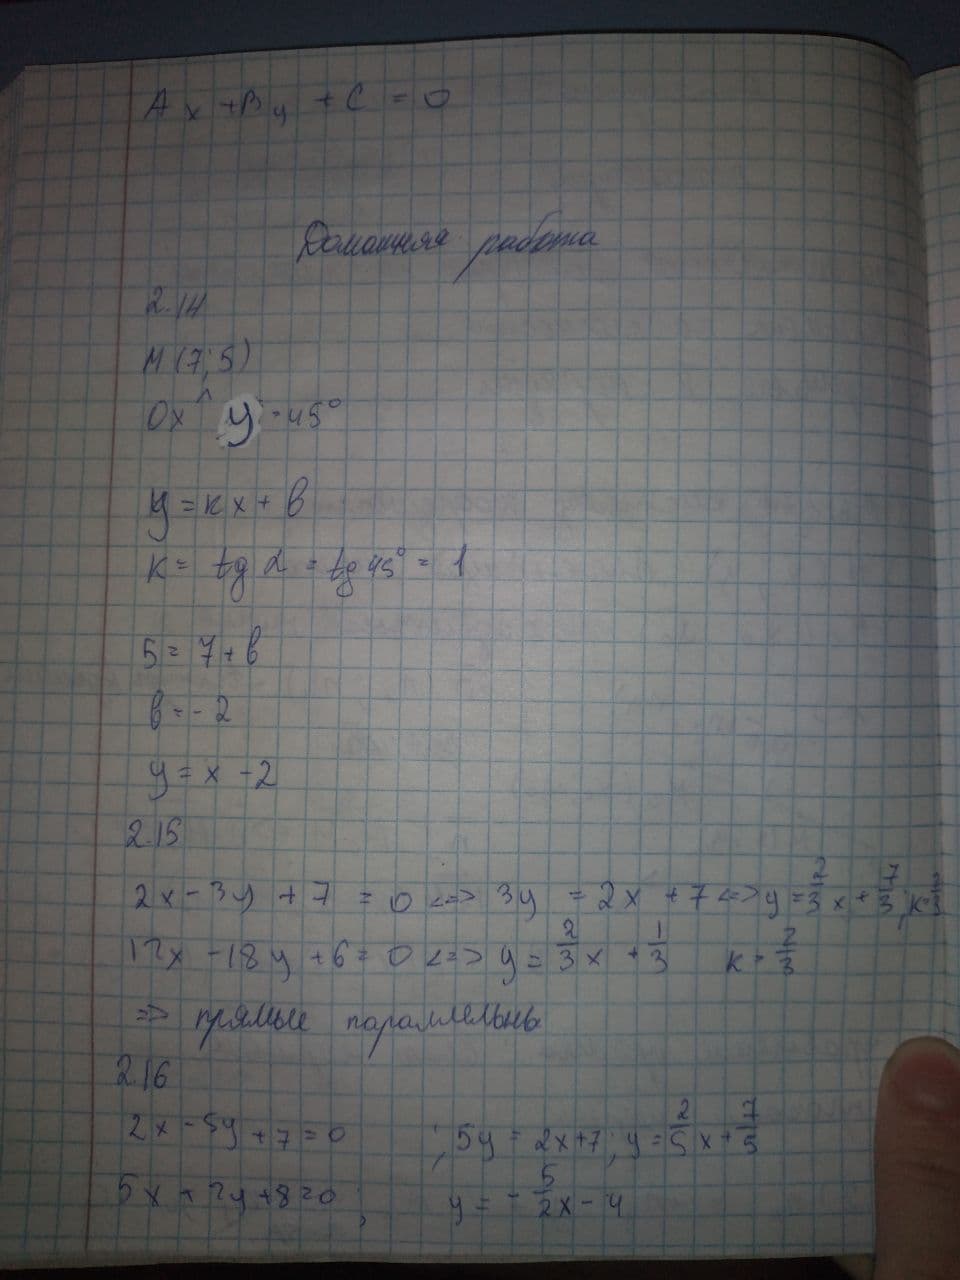 Ax + By + C = 0
Домашняя работа
2.14
M (7; 5)
Ox ^ y = 45°
y = kx + b
k = tg α = tg 45° = 1
5 = 7 + b
b = - 2
y = x - 2
2.15
2x - 3y + 7 = 0 <=> 3y = 2x + 7 <=> y = 2/3 x + 7/3, k = 2/3
12x - 18y + 6 = 0 <=> y = 2/3 x + 1/3 k = 2/3
=> прямые параллельны
2.16
2x - 5y + 7 = 0 ; 5y = 2x + 7; y = 2/5 x + 7/5
5x + 2y + 8 = 0 ; y = - 5/2 x - 4